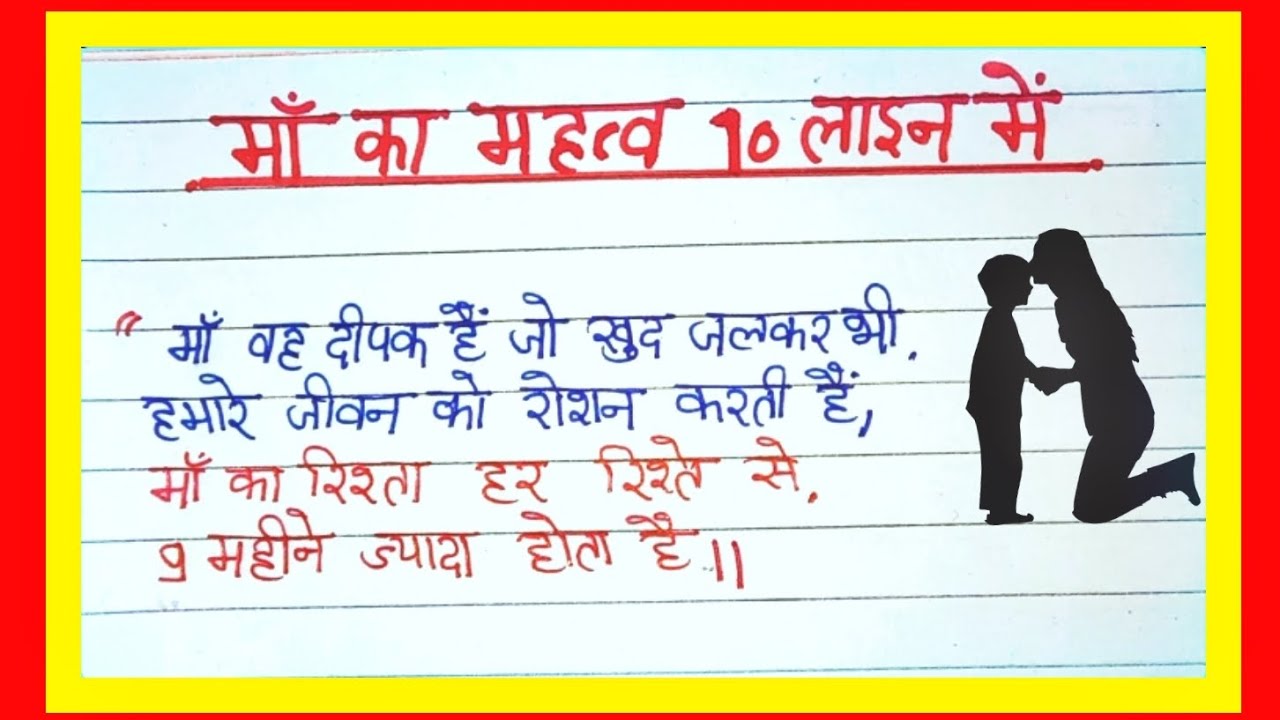 माँ का महत्व 10 लाइन में
" माँ वह दीपक हैं जो खुद जलकर भी.
हमारे जीवन को रोशन करती हैं,
माँ का रिश्ता हर रिश्ते से.
9 महीने ज्यादा होता है ।।